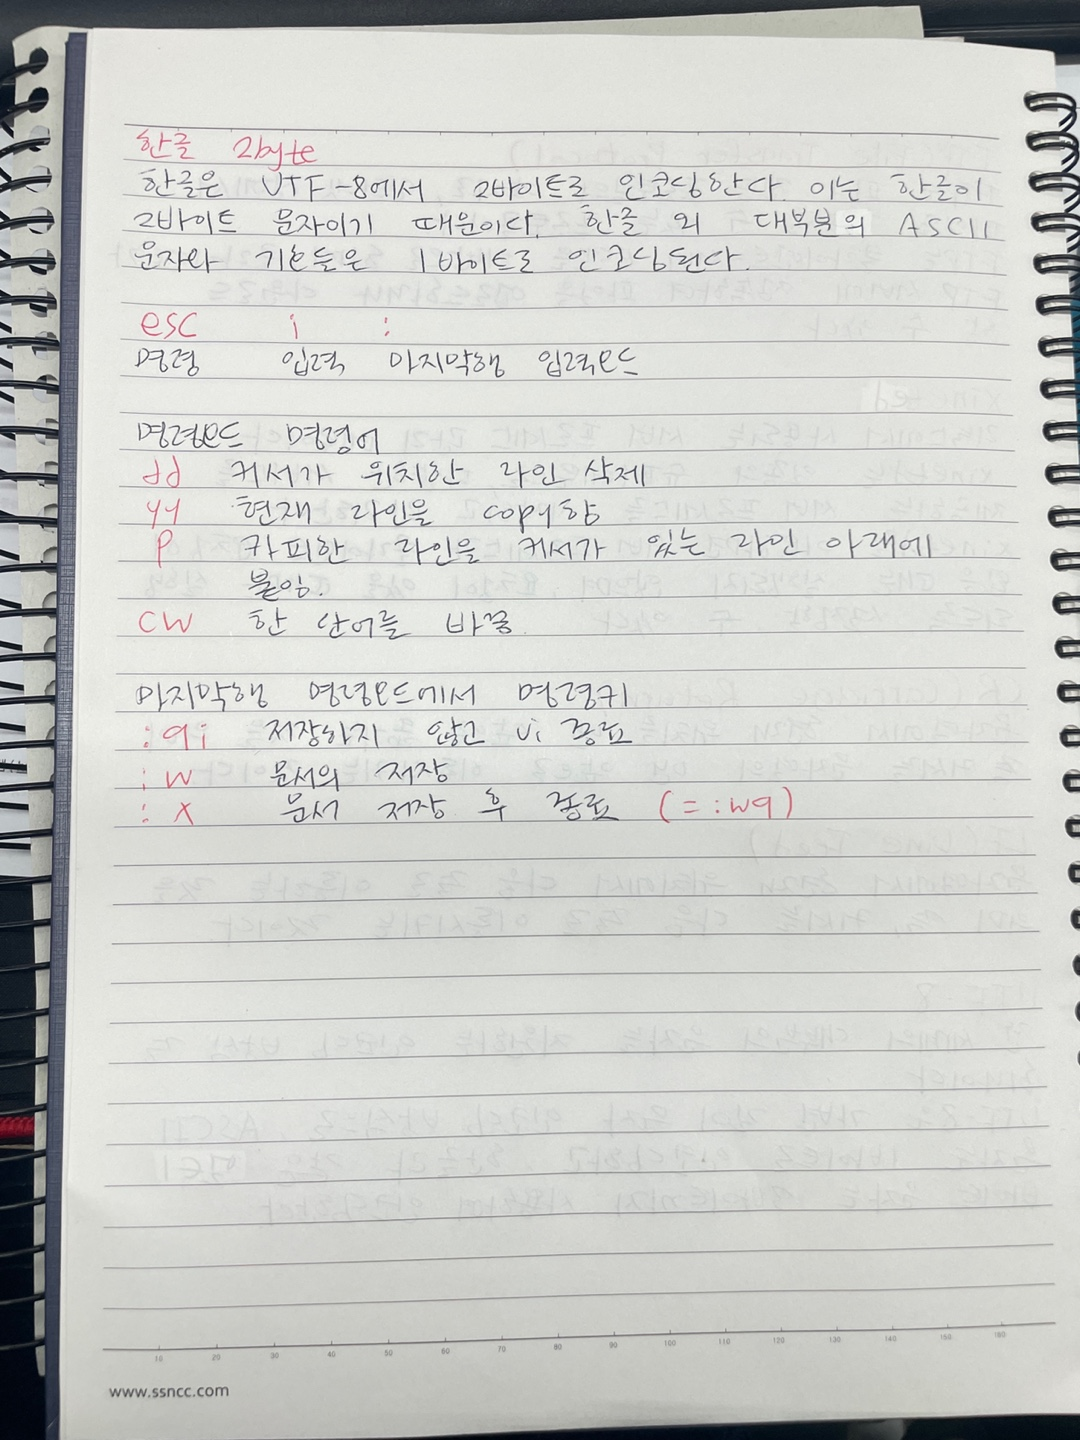 한글 2byte
한글은 UTF-8에서 2바이트로 인코딩한다. 이는 한글이
2바이트 문자이기 때문이다. 한글 외 대부분의 ASCII
문자와 기호들은 1바이트로 인코딩된다.
esc i :
명령 입력 마지막행 입력모드
명령모드 명령어
dd 커서가 위치한 라인 삭제
yy 현재 라인을 copy함
p 카피한 라인을 커서가 있는 라인 아래에
붙임.
cw 한 단어를 바꿈.
마지막행 명령모드에서 명령키
:q; 저장하지 않고 vi 종료
:w 문서의 저장
:x 문서 저장 후 종료 (=:wq)
10 20 30 40 50 60 70 80 90 100 110 120 130 140 150 160
www.ssncc.com